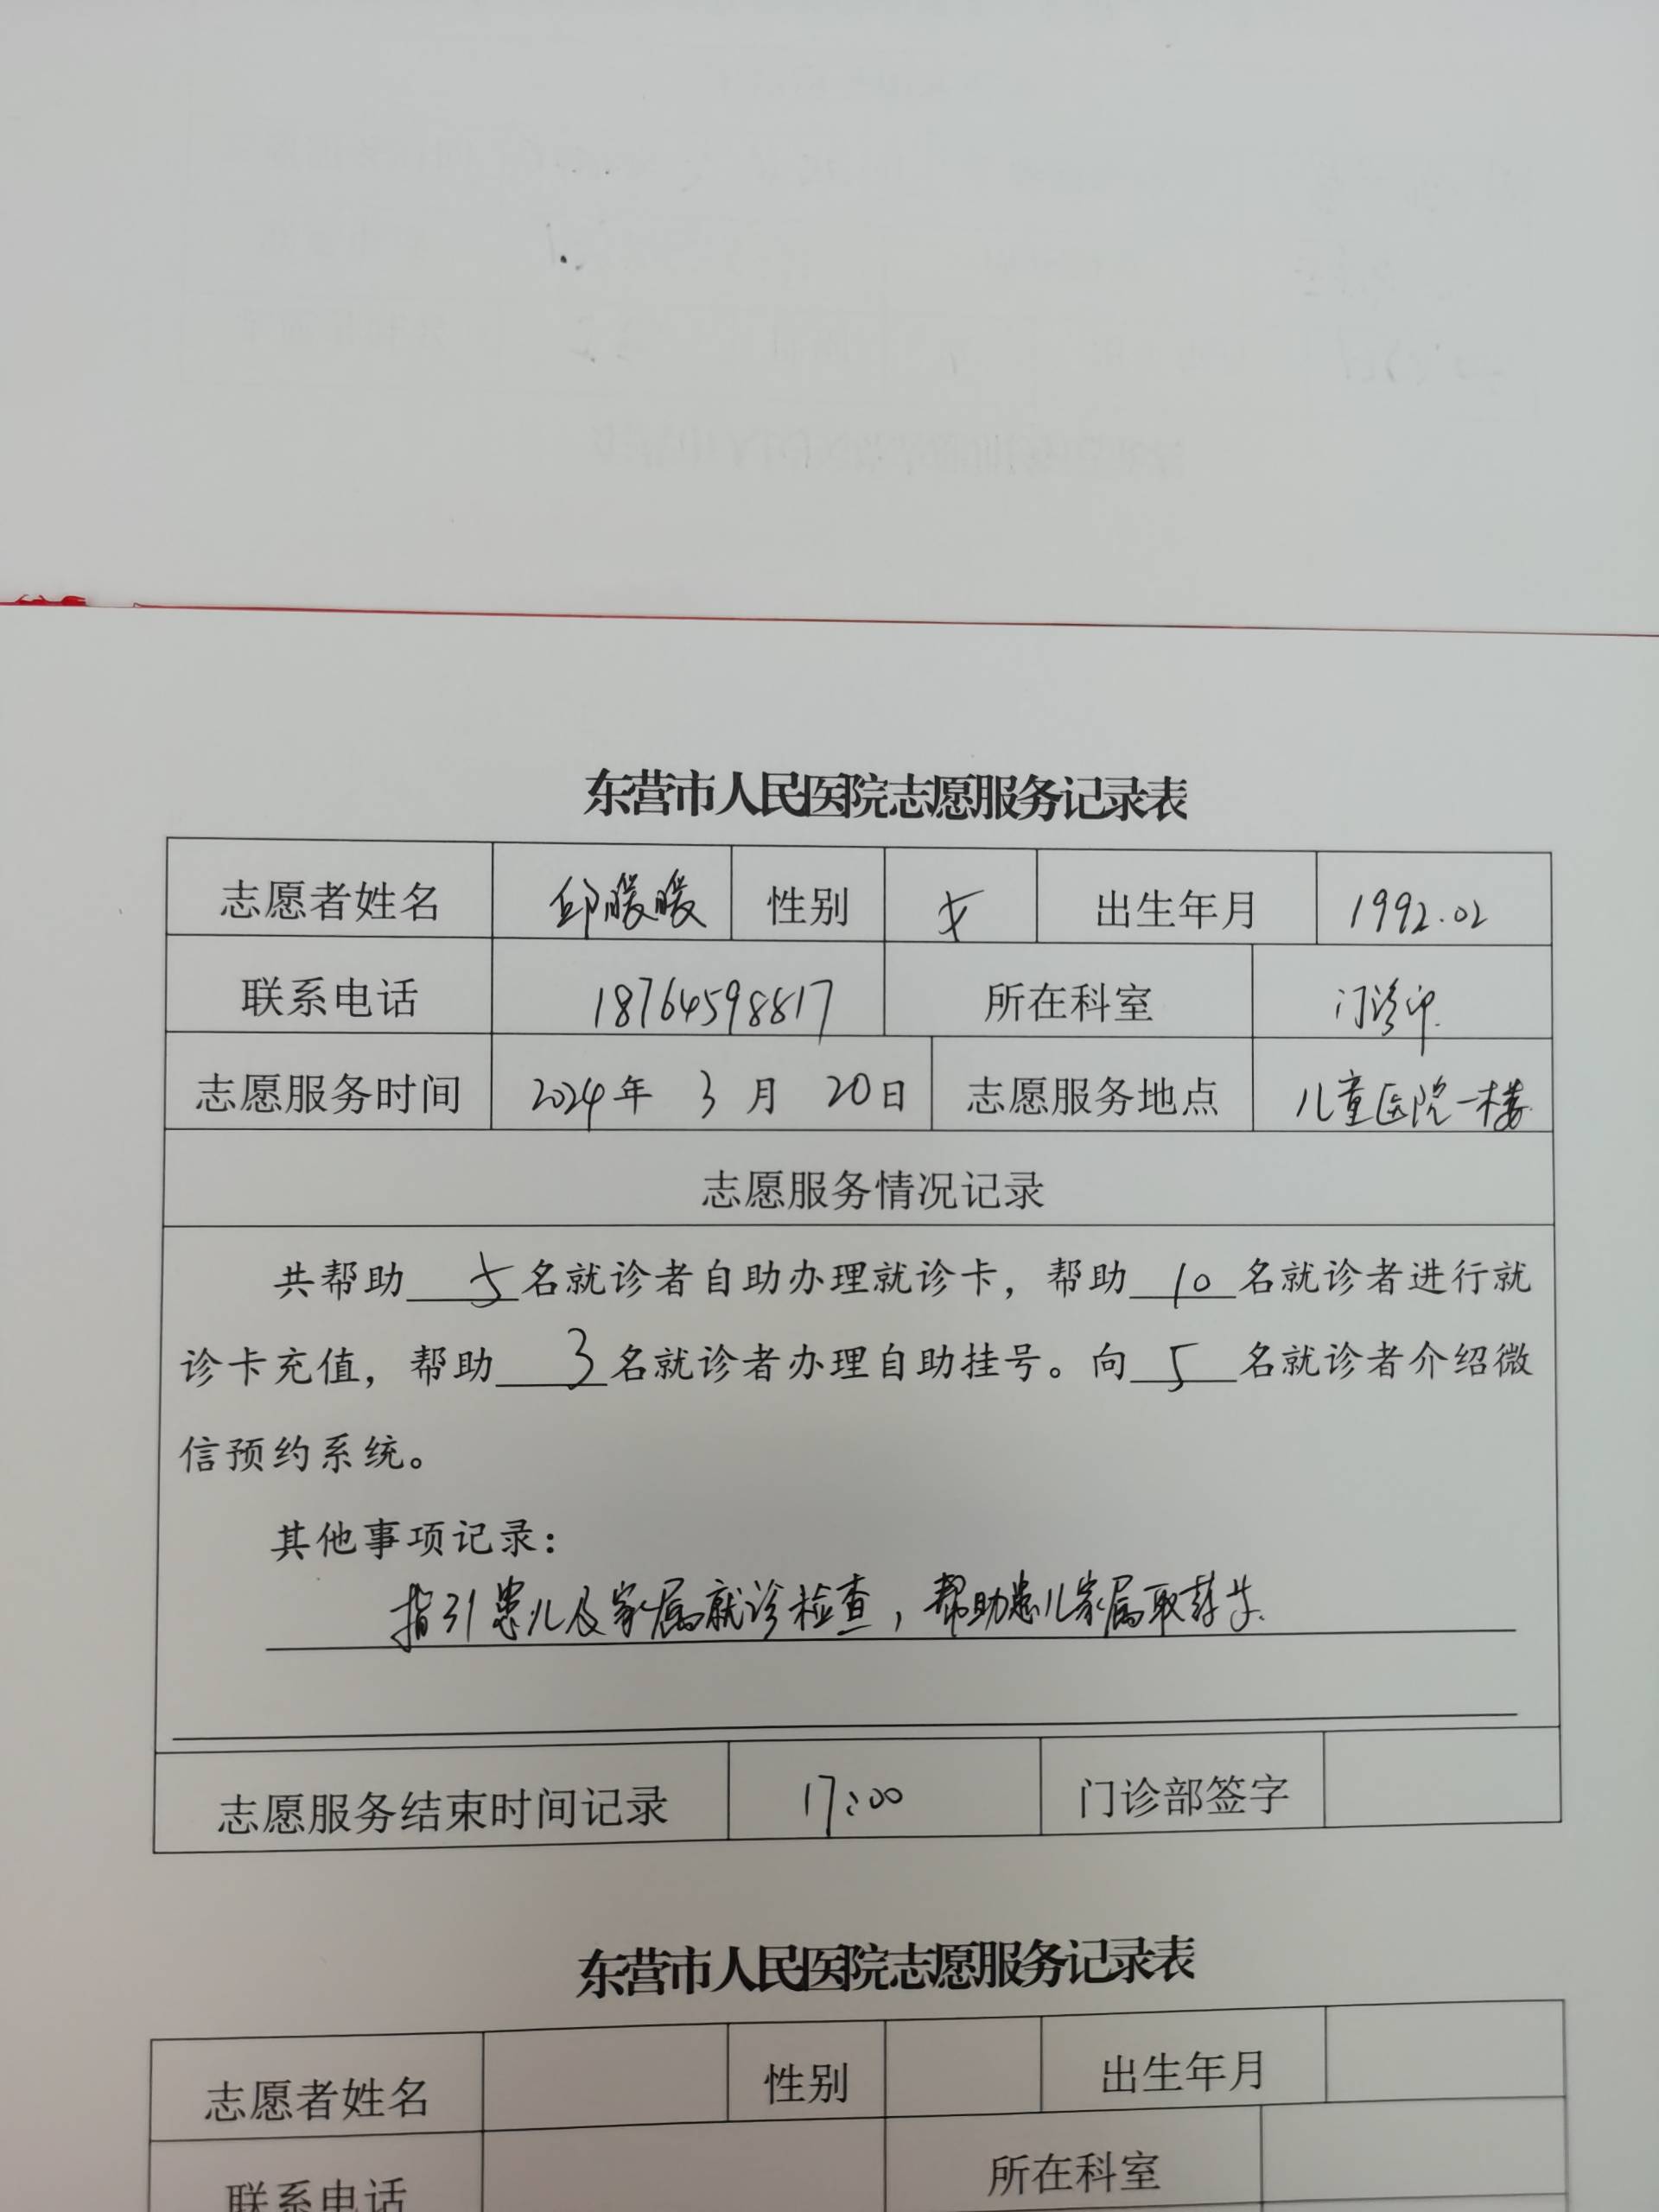 东营市人民医院志愿服务记录表
志愿者姓名 邱暖暖 性别 女 出生年月 1992.02
联系电话 18764598817 所在科室 门诊部
志愿服务时间 2024年 3 月 20日 志愿服务地点 儿童医院一楼
志愿服务情况记录
共帮助 5 名就诊者自助办理就诊卡，帮助 10 名就诊者进行就
诊卡充值，帮助 3 名就诊者办理自助挂号。向 5 名就诊者介绍微
信预约系统。
其他事项记录：
指引患儿及家属就诊检查，帮助患儿家属取药等.
志愿服务结束时间记录 17:00 门诊部签字
东营市人民医院志愿服务记录表
志愿者姓名 性别 出生年月
联系电话 所在科室